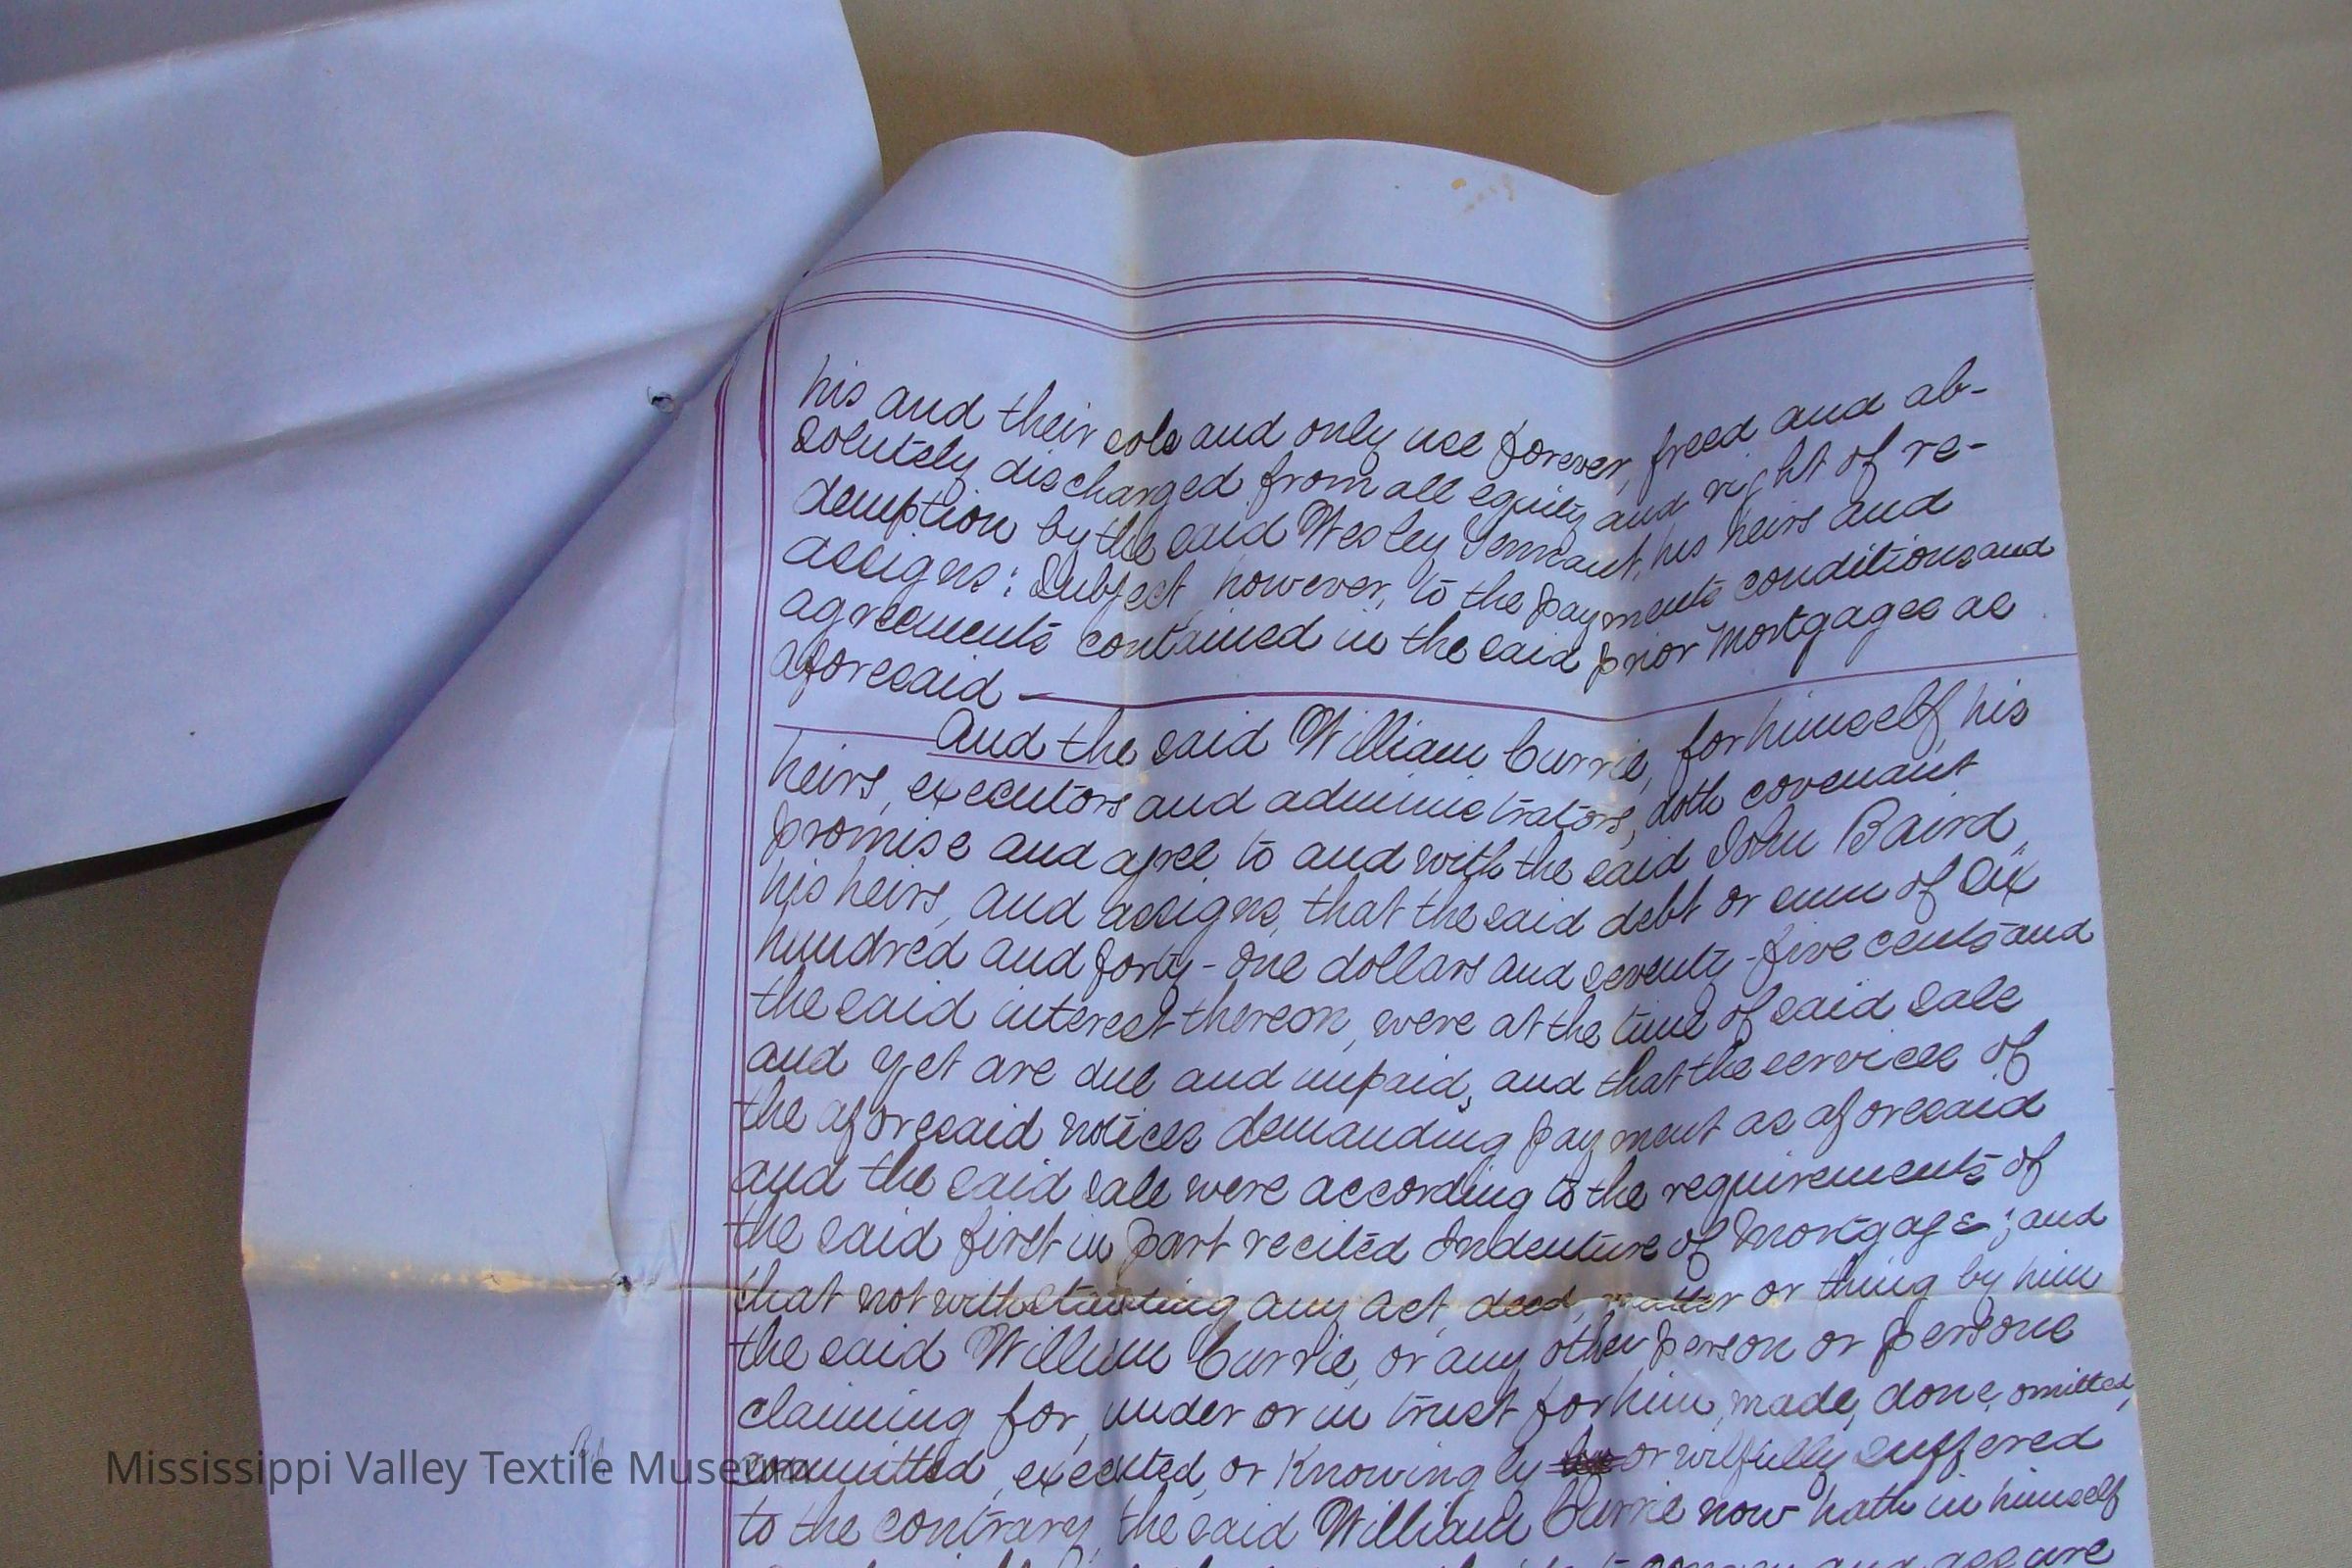 his and their sole and only use forever, freed and ab-
solutely discharged from all equity and right of re-
demption by the said Wesley Tennant, his heirs and
assigns: Subject, however, to the payments conditions and
agreements contained in the said prior Mortgages as
aforesaid
And the said William Currie, for himself, his
heirs, executors and administrators, doth covenant
promise and agree to and with the said John Baird,
his heirs, and assigns, that the said debt or sum of Six
hundred and forty-one dollars and seventy-five cents and
the said interest thereon, were at the time of said sale
and yet are due and unpaid, and that the services of
the aforesaid notices demanding payment as aforesaid
and the said sale were according to the requirements of
the said first in part recited Indenture of Mortgage; and
that notwithstanding any act, deed, matter or thing by him
the said William Currie, or any other person or persons
claiming for, under or in trust for him, made, done, omitted,
committed, executed, or knowingly or wilfully suffered
to the contrary, the said William Currie now hath in himself
and assure
Mississippi Valley Textile Museum